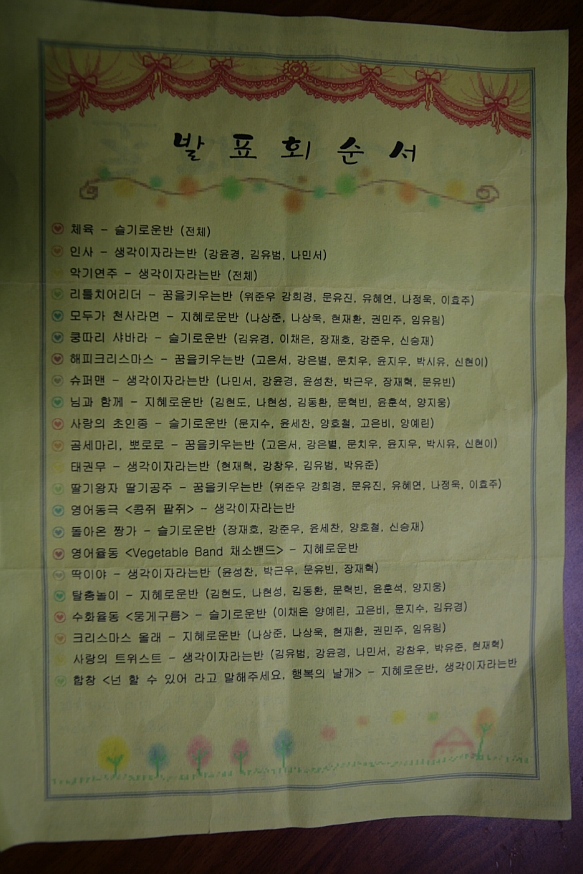 발표회순서
체육 - 슬기로운반 (전체)
인사 - 생각이자라는반 (강윤경, 김유범, 나민서)
악기연주 - 생각이자라는반 (전체)
리틀치어리더 - 꿈을키우는반 (위준우 강희경, 문유진, 유혜연, 나정욱, 이효주)
모두가 천사라면 - 지혜로운반 (나상준, 나상욱, 현재환, 권민주, 임유림)
쿵따리 샤바라 - 슬기로운반 (김유경, 이채은, 장재호, 강준우, 신승재)
해피크리스마스 - 꿈을키우는반 (고은서, 강은별, 문치우, 윤지우, 박시유, 신현이)
슈퍼맨 - 생각이자라는반 (나민서, 강윤경, 윤성찬, 박근우, 장재혁, 문유빈)
님과 함께 - 지혜로운반 (김현도, 나현성, 김동환, 문혁빈, 윤훈석, 양지웅)
사랑의 초인종 - 슬기로운반 (문지수, 윤세찬, 양호철, 고은비, 양예린)
곰세마리, 뽀로로 - 꿈을키우는반 (고은서, 강은별, 문치우, 윤지우, 박시유, 신현이)
태권무 - 생각이자라는반 (현재혁, 강창우, 김유범, 박유준)
딸기왕자 딸기공주 - 꿈을키우는반 (위준우 강희경, 문유진, 유혜연, 나정욱, 이효주)
영어동극 <콩쥐 팥쥐> - 생각이자라는반
돌아온 짱가 - 슬기로운반 (장재호, 강준우, 윤세찬, 양호철, 신승재)
영어율동 <Vegetable Band 채소밴드> - 지혜로운반
딱이야 - 생각이자라는반 (윤성찬, 박근우, 문유빈, 장재혁)
탈춤놀이 - 지혜로운반 (김현도, 나현성, 김동환, 문혁빈, 윤훈석, 양지웅)
수화율동 <뭉게구름> - 슬기로운반 (이채은 양예린, 고은비, 문지수, 김유경)
크리스마스 올래 - 지혜로운반 (나상준, 나상욱, 현재환, 권민주, 임유림)
사랑의 트위스트 - 생각이자라는반 (김유범, 강윤경, 나민서, 강창우, 박유준, 현재혁)
합창 <넌 할 수 있어 라고 말해주세요, 행복의 날개> - 지혜로운반, 생각이자라는반